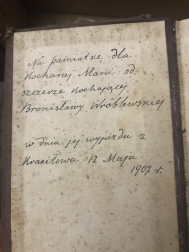 Na pamiątkę dla
Kochanej Mani od
szczerze kochającej
Bronisławy Wróblewskiej
w dniu jej wyjazdu z
12 Maja
1907 r.